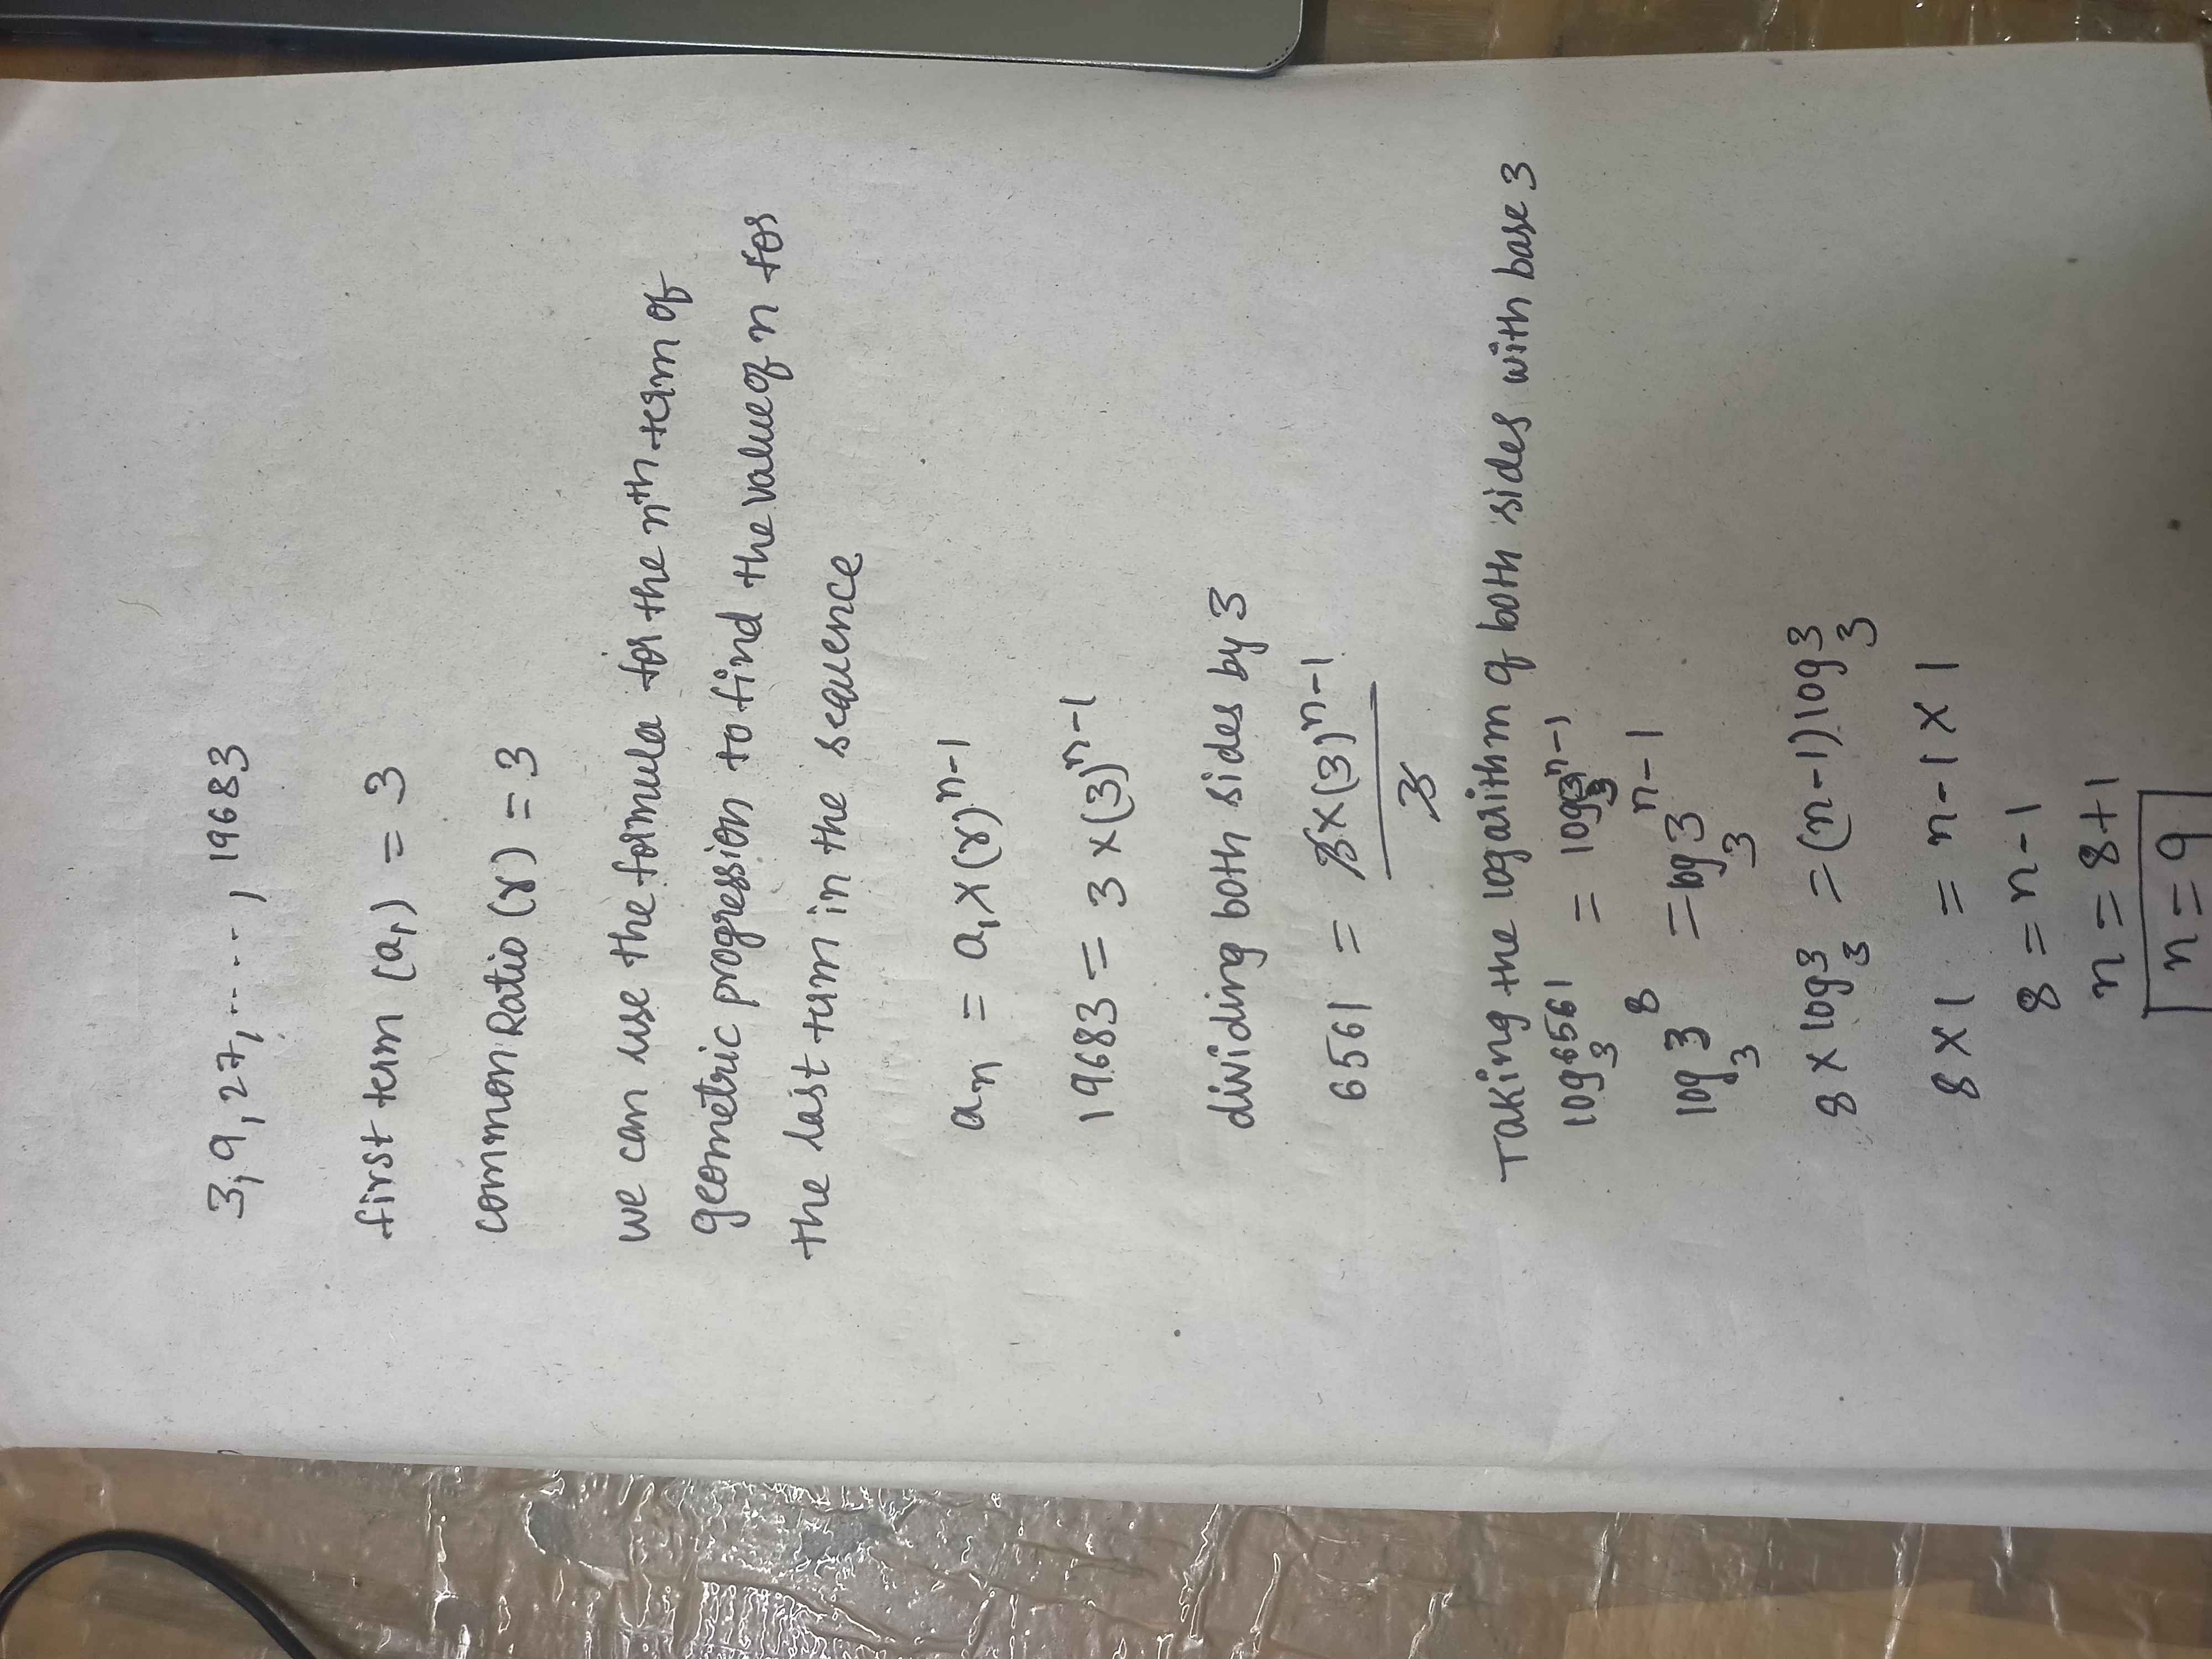 3, 9, 27, ....., 19683
first term (a₁) = 3
common Ratio (r) = 3
we can use the formula for the nth term of
geometric progression to find the value of n for
the last term in the sequence
aₙ = a₁ x (r)ⁿ⁻¹
19683 = 3 x (3)ⁿ⁻¹
dividing both sides by 3
6561 = 3 x (3)ⁿ⁻¹ / 3
Taking the logarithm of both sides with base 3
log₃ 6561 = log₃ 3ⁿ⁻¹
log₃ 3⁸ = log₃ 3ⁿ⁻¹
8 x log₃ 3 = (n-1) log₃ 3
8 x 1 = n-1 x 1
8 = n-1
n = 8+1
n = 9